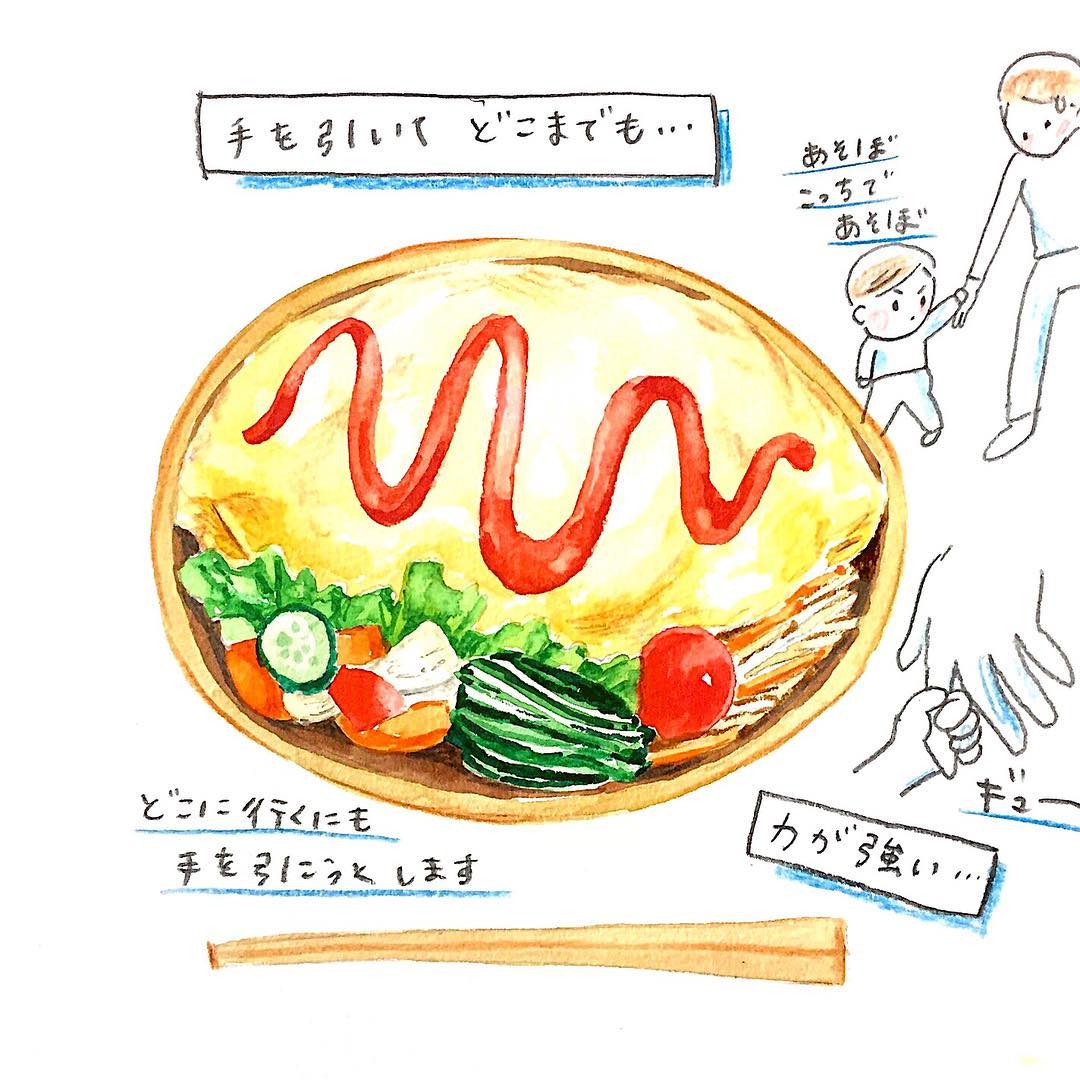 手を引いて どこまでも…
あそぼ
こっちで
あそぼ
ギュー
力が強い…
どこに行くにも
手を引こうとします